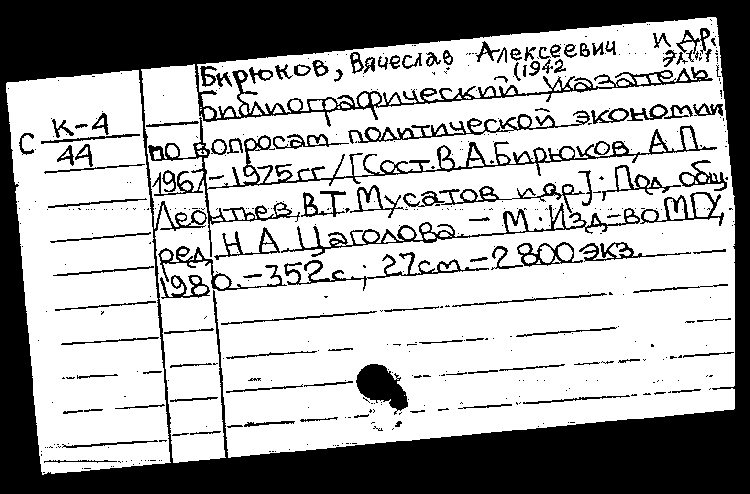 Бирюков, Вячеслав Алексеевич и др.
(1942 экон
С К-4
44
библиографический указатель
по вопросам политической экономии
1967-1975гг/[Сост.В.А.Бирюков, А.П.
Леонтьев, В.Т.Мусатов и др.]; Под общ.
ред. Н.А.Цаголова.-М.:Изд-во МГУ,
1980.-352с.; 27см.-2800экз.